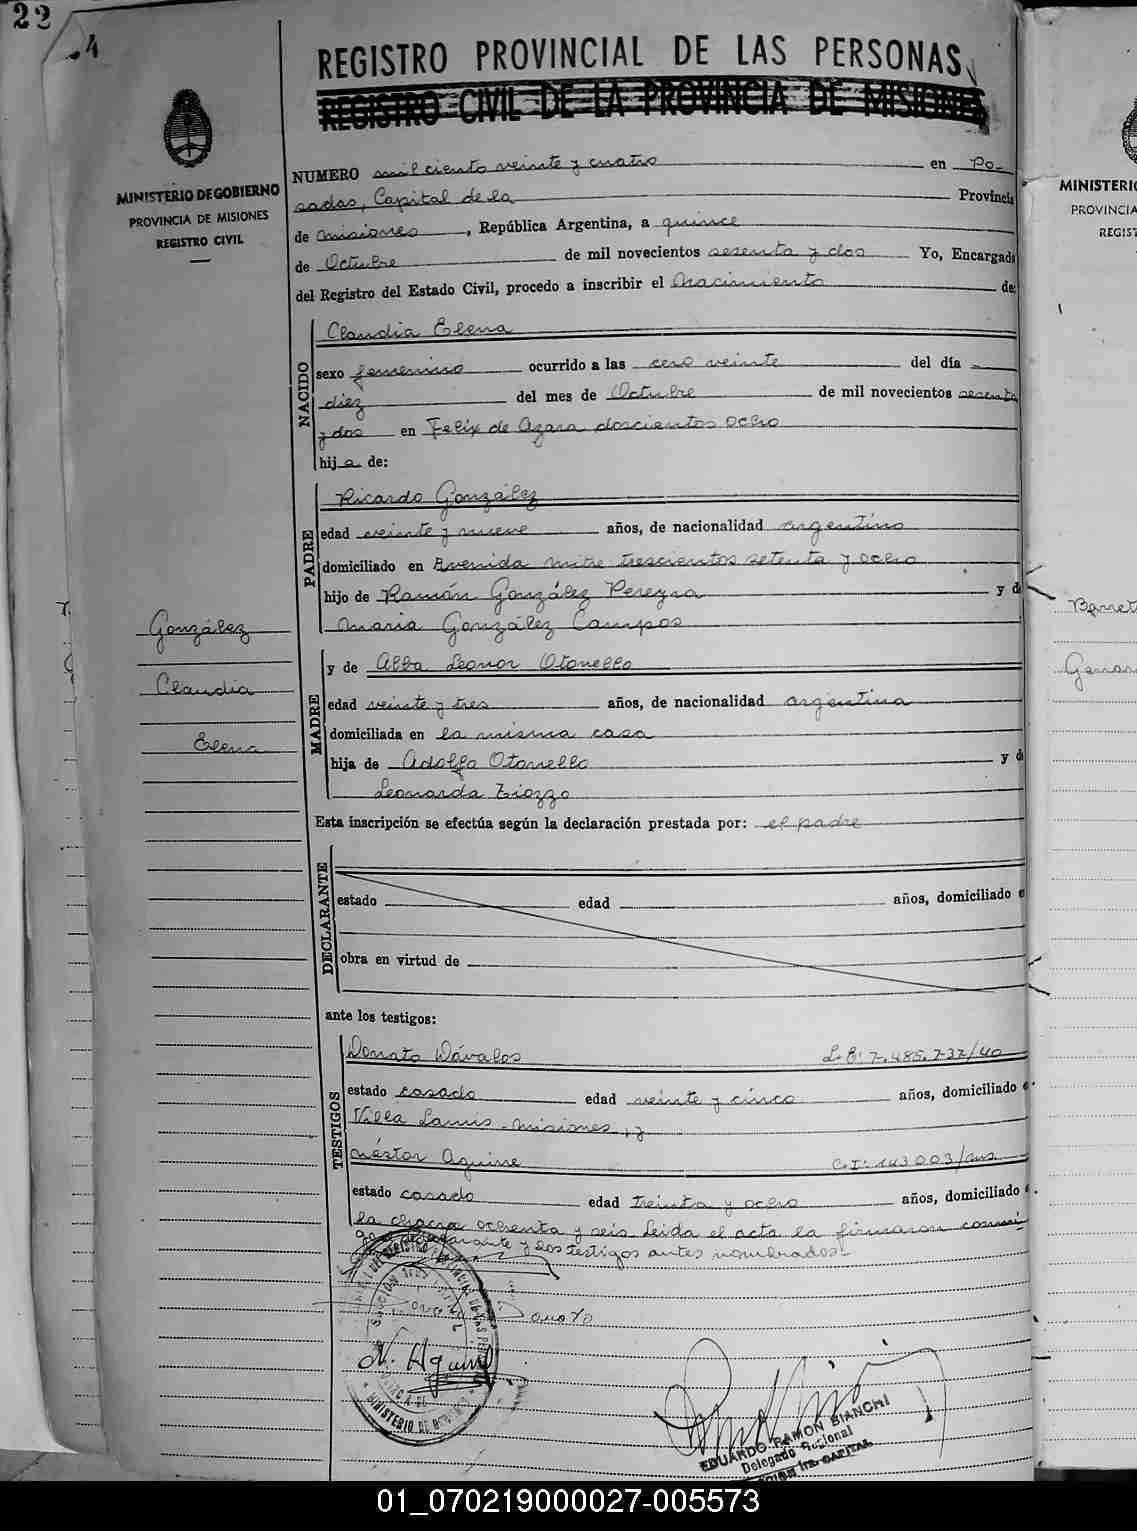 22
4
REGISTRO PROVINCIAL DE LAS PERSONAS
REGISTRO CIVIL DE LA PROVINCIA DE MISIONES
MINISTERIO DE GOBIERNO
PROVINCIA DE MISIONES
REGISTRO CIVIL
NUMERO mil ciento veinte y cuatro en Po-
sadas, Capital de la Provincia
de Misiones, República Argentina, a quince
de Octubre de mil novecientos sesenta y dos Yo, Encargado
del Registro del Estado Civil, procedo a inscribir el Nacimiento de:
NACIDO
Claudia Elena
sexo femenino ocurrido a las cero veinte del día
diez del mes de Octubre de mil novecientos sesenta
y dos en Felix de Azara doscientos ocho
hija de:
PADRE
Ricardo González
edad veinte y nueve años, de nacionalidad argentino
domiciliado en Avenida Mitre trescientos setenta y ocho
hijo de Ramón González Pereyra y de
Maria González Campos
González
Claudia
Elena
MADRE
y de Alba Leonor Otonello
edad veinte y tres años, de nacionalidad argentina
domiciliada en la misma casa
hija de Adolfo Otonello y d
Leonarda Tiozzo
Esta inscripción se efectúa según la declaración prestada por: el padre
DECLARANTE
estado edad años, domiciliado e
obra en virtud de
ante los testigos:
TESTIGOS
Donato Dávalos L.E: 7.485.737/40
estado casado edad veinte y cinco años, domiciliado e
Villa Lanus - Misiones, y
Néstor Aguirre C.I: 143003/
estado casado edad treinta y ocho años, domiciliado e
la chacra ochenta y seis Leida el acta la firmaron conmi-
go el declarante y los testigos antes nombrados.
N. Aguirre
MINISTERIO DE
EDUARDO RAMON BIANCHI
Delegado Regional
CAPITAL
MINISTERI
PROVINCIA
REGIST
Barret
01_070219000027-005573